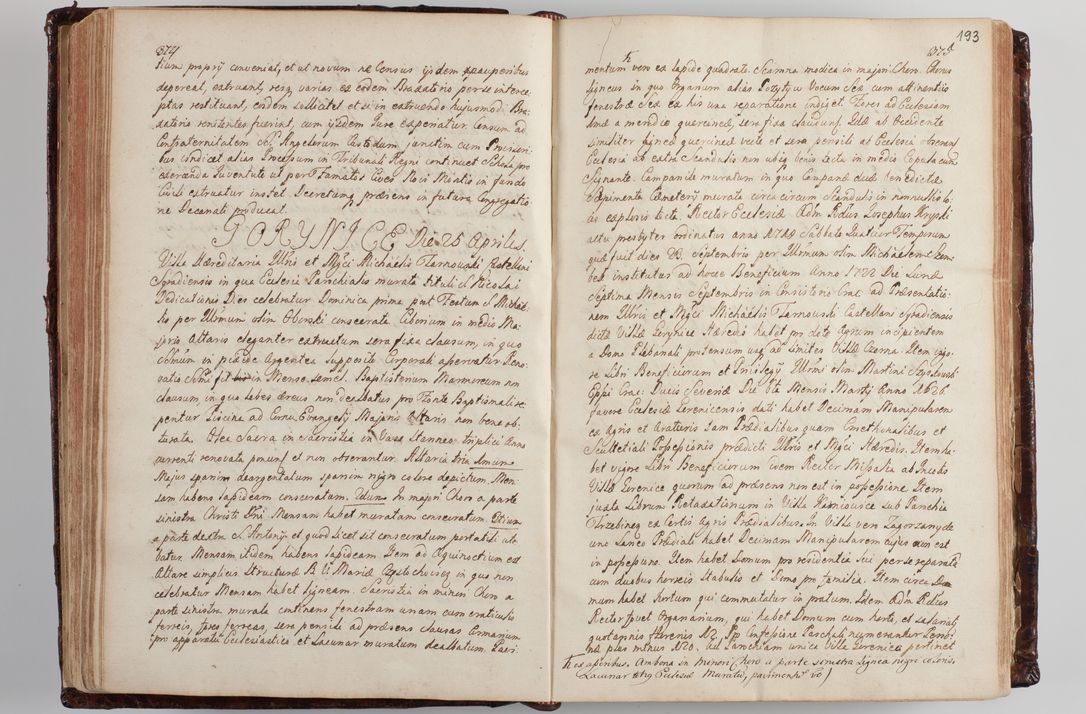 374
tium proprij conveniat, et ut novum ne Census ijsdem pauperibus
depereat, extruant, resq varias ex eodem Braxatorio per se interce-
ptas restituant, eosdem sollicitet et si in extruendo hujusmodi Bra-
xatorio renitentes fuerint, cum ijsdem Jure experiatur. Censum ad
Confraternitatem SS. Angelorum Custodum, junctim cum Provisori-
bus vindicet alias Processum in Tribunali Regni continuet Schola pro
exercenda Juventute ut per Famatos Cives Novi Montis in fundo
Civili extruatur instet Decretum præsens in futura Congregatio-
ne Decanali producat.
GORYNICE Die 25 Aprilis.
Villa Hæreditaria Illris et Mgci Michaelis Tarnowski Castellani
Syradiensis in qua Ecclesia Parochialis murata tituli S. Nicolai
Dedicationis Dies celebratur Dominica prima post Festum S. Michaë-
lis per Illmum olim Oborski consecrata. Ciborium in medio Ma-
joris Altaris eleganter extructum sera fixa clausum, in quo
in pixide Argentea supposito Corporali asservatur Reno-
vatio fit in Mense semel. Baptisterium Marmoreum non
clausum in quo lebes æreus non dealbatus pro Fonte Baptismali re-
peritur Piscina ad Cornu Evangelij Majoris Altaris non bene ob-
turata. Olea Sacra in Sacristia in Vase Stanneo triplici Anno
currenti renovata ponunt et non obserantur. Altaria tria Imum
Majus sparsim deargentatum sparsim nigro colore depictum. Men-
sam habens lapideam consecratam. 2dum In majori Choro a parte
sinistra Christi Dni Mensam habet muratam consecratam. 3tium
a parte dextra S. Antonij et quod licet sit consecratum portatili uti-
tur Mensam itidem habens lapideam Item ad Æquinoctium est
Altare simplicis Structuræ B. V. Mariæ Częstochoviens in quo non
celebratur Mensam habet ligneam. Sacristia in minori Choro a
parte sinistra murata continens fenestram unam cum craticulis
ferreis, fores ferreas, sera pensili ad præsens clausas Armarium
pro apparatu Ecclesiastico et Lacunar muratum dealbatum. Pavi-
193
375
mentum vero ex lapide quadrato. Scamna modica in majori Choro. Chorus
ligneus in quo Organum alias Pozytyw Vocum Sex cum attinentiis
fenestræ Sex ex his una reparatione indiget Fores ad Ecclesiam
Imæ a meridie querceneæ, sera fixa claudunt 2dæ ab Occidente
similiter ligneæ querceneæ vecte et sera pensili ab Ecclesia obserant
Ecclesia ab extra Scandulis non ubiq benis tecta in medio Copula cum
Signante. Campanile muratum in quo Campanæ duæ benedictæ
Sæpimenta Cæmeterij murata circa circum Scandulis in nonnullis lo-
cis explosis tecta. Rector Ecclesiæ Adm Rdus Josephus Krynski
actu presbyter ordinatus anno 1718 Sabbato Quatuor Temporum
quæ fuit dies 23 Septembris per Illmum olim Michaelem Szem-
bek institutus ad hocce Beneficium Anno 1722 Die Lunæ
Septima Mensis Septembris in Consistorio Crac. ad Præsentatio-
nem Illris et Mgci Michaelis Tarnowski Castellani Syradiensis
dictæ Villæ Gorynice Hæredis habet pro dote Agrum incipientem
a Domo Plebanali protensum usq ad limites Villæ Czerna. Item vigo-
re Libri Beneficiorum et Privilegij Illrmi olim Martini Szyszkowski
Eppi Crac. Ducis Severiæ Die 6ta Mensis Martij Anno 1626.
favore Ecclesiæ Gorenicensis dati habet Decimam Manipularem
ex Agris et Araturis tam Prædialibus quam Cmethonalibus et
Scultetiali Possessionis prædicti Illris et Mgci Hæredis. Item ha-
bet vigore Libri Beneficiorum isdem Rector Missalia ab Incolis
Villæ Gorenice quorum ad præsens non est in possessione Item
juxta Librum Retaxationum in Villa Kamionice sub Parochia
Trzebinea ex Certis Agris Prædialibus. In Villa vero Zagorzany de
uno Laneo Prædiali habet Decimam Manipularem cujus non est
in possessione. Item habet Domum pro residentia sui per se reparatā
cum duabus horreis Stabulis et Domo pro familia. Item circa Do-
mum habet hortum qui commutatur in pratum. Idem Adm Rdus
Rector fovet Organarium, qui habet Domum cum horto, et salariat
quotannis florenis N2. Pp Confessione Paschali numerantur Perso-
næ plus minus N20. ad Parochiam unica Villa Gorenice pertinet
ex asseribus. Ambona in minori Choro a parte sinistra lignea nigri coloris.
Lacunar totig Ecclesiæ Muratu, pavimentū vo)